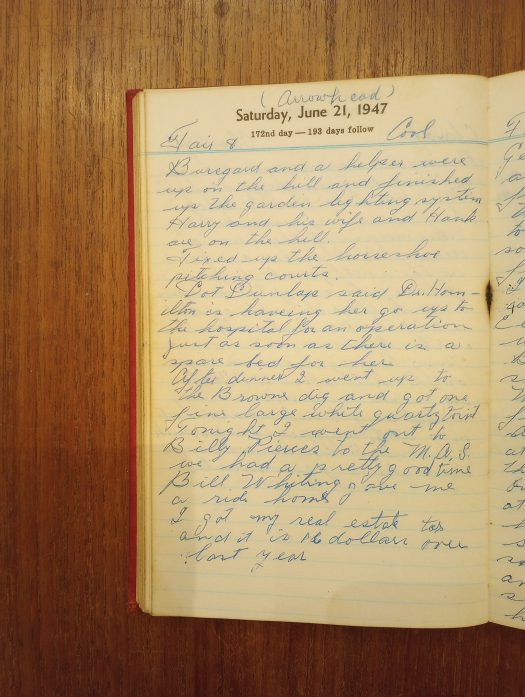 (Arrowhead)
Saturday, June 21, 1947
172nd day — 193 days follow
Fair & Cool
Buregard and a helper were
up on the hill and finished
up the garden lighting system
Harry and his wife and Hank
are on the hill.
Fixed up the horseshoe
pitching courts.
Dot Dunlap said Dr. Ham-
ilton is haveing her go up to
the hospital for an operation
just as soon as there is a
spare bed for her
After dinner I went up to
the Browne dig and got one
fine large white quartz point
Tonight I went out to
Billy Pierces to the M.A.S.
we had a pretty good time
Bill Whiting gave me
a ride home
I got my real estate tax
and it is 16 dollars over
last year